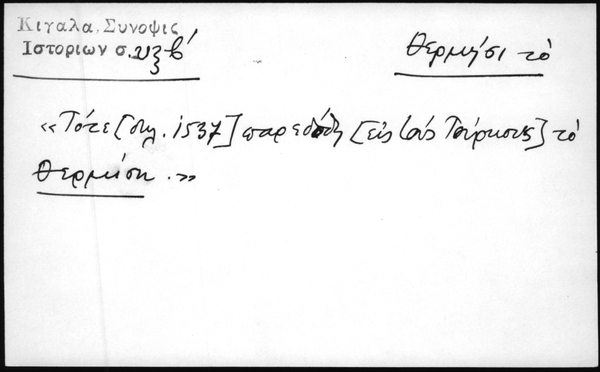 Κιγαλα, Συνοψις
Ιστοριων σ. υξβ΄
Θερμήσι τὸ
«Τότε [δηλ. 1537] παρεδόθη [εἰς τοὺς Τούρκους] τὸ
Θερμίση.»